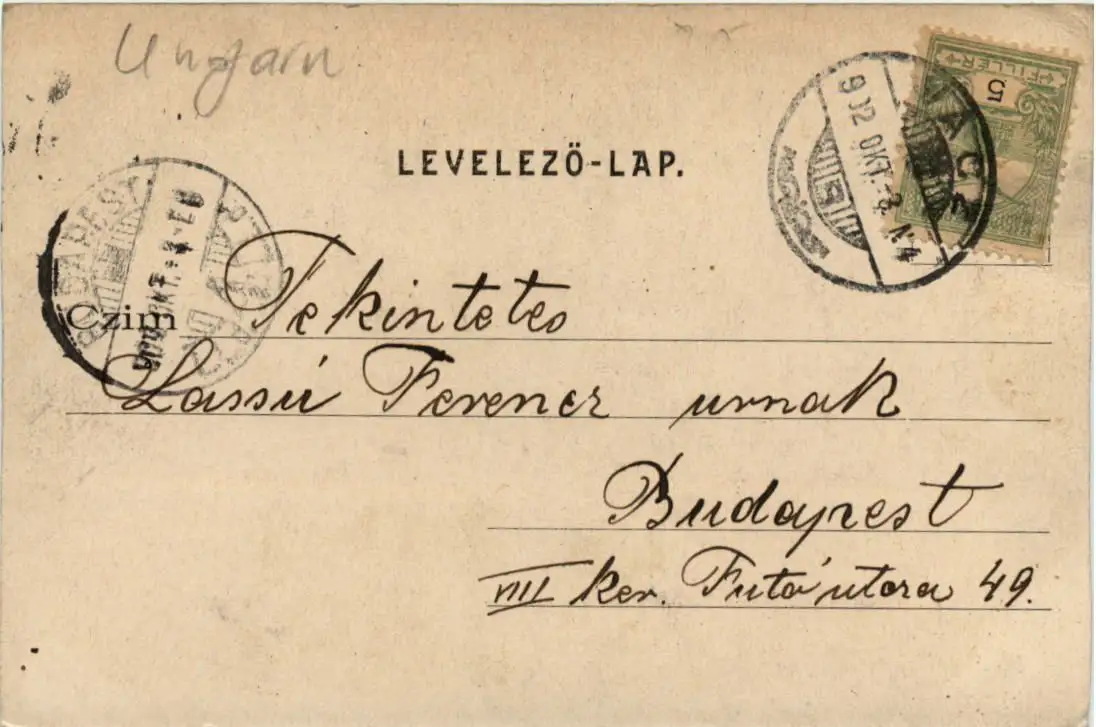 Ungarn
LEVELEZŐ-LAP.
FILLER
5
VÁCZ
902 OKT. -3. N4
BUDAPEST
902 OKT. -3.
Czim Tekintetes
Lassú Ferencz urnak
Budapest
VIII ker. Futó utcza 49.